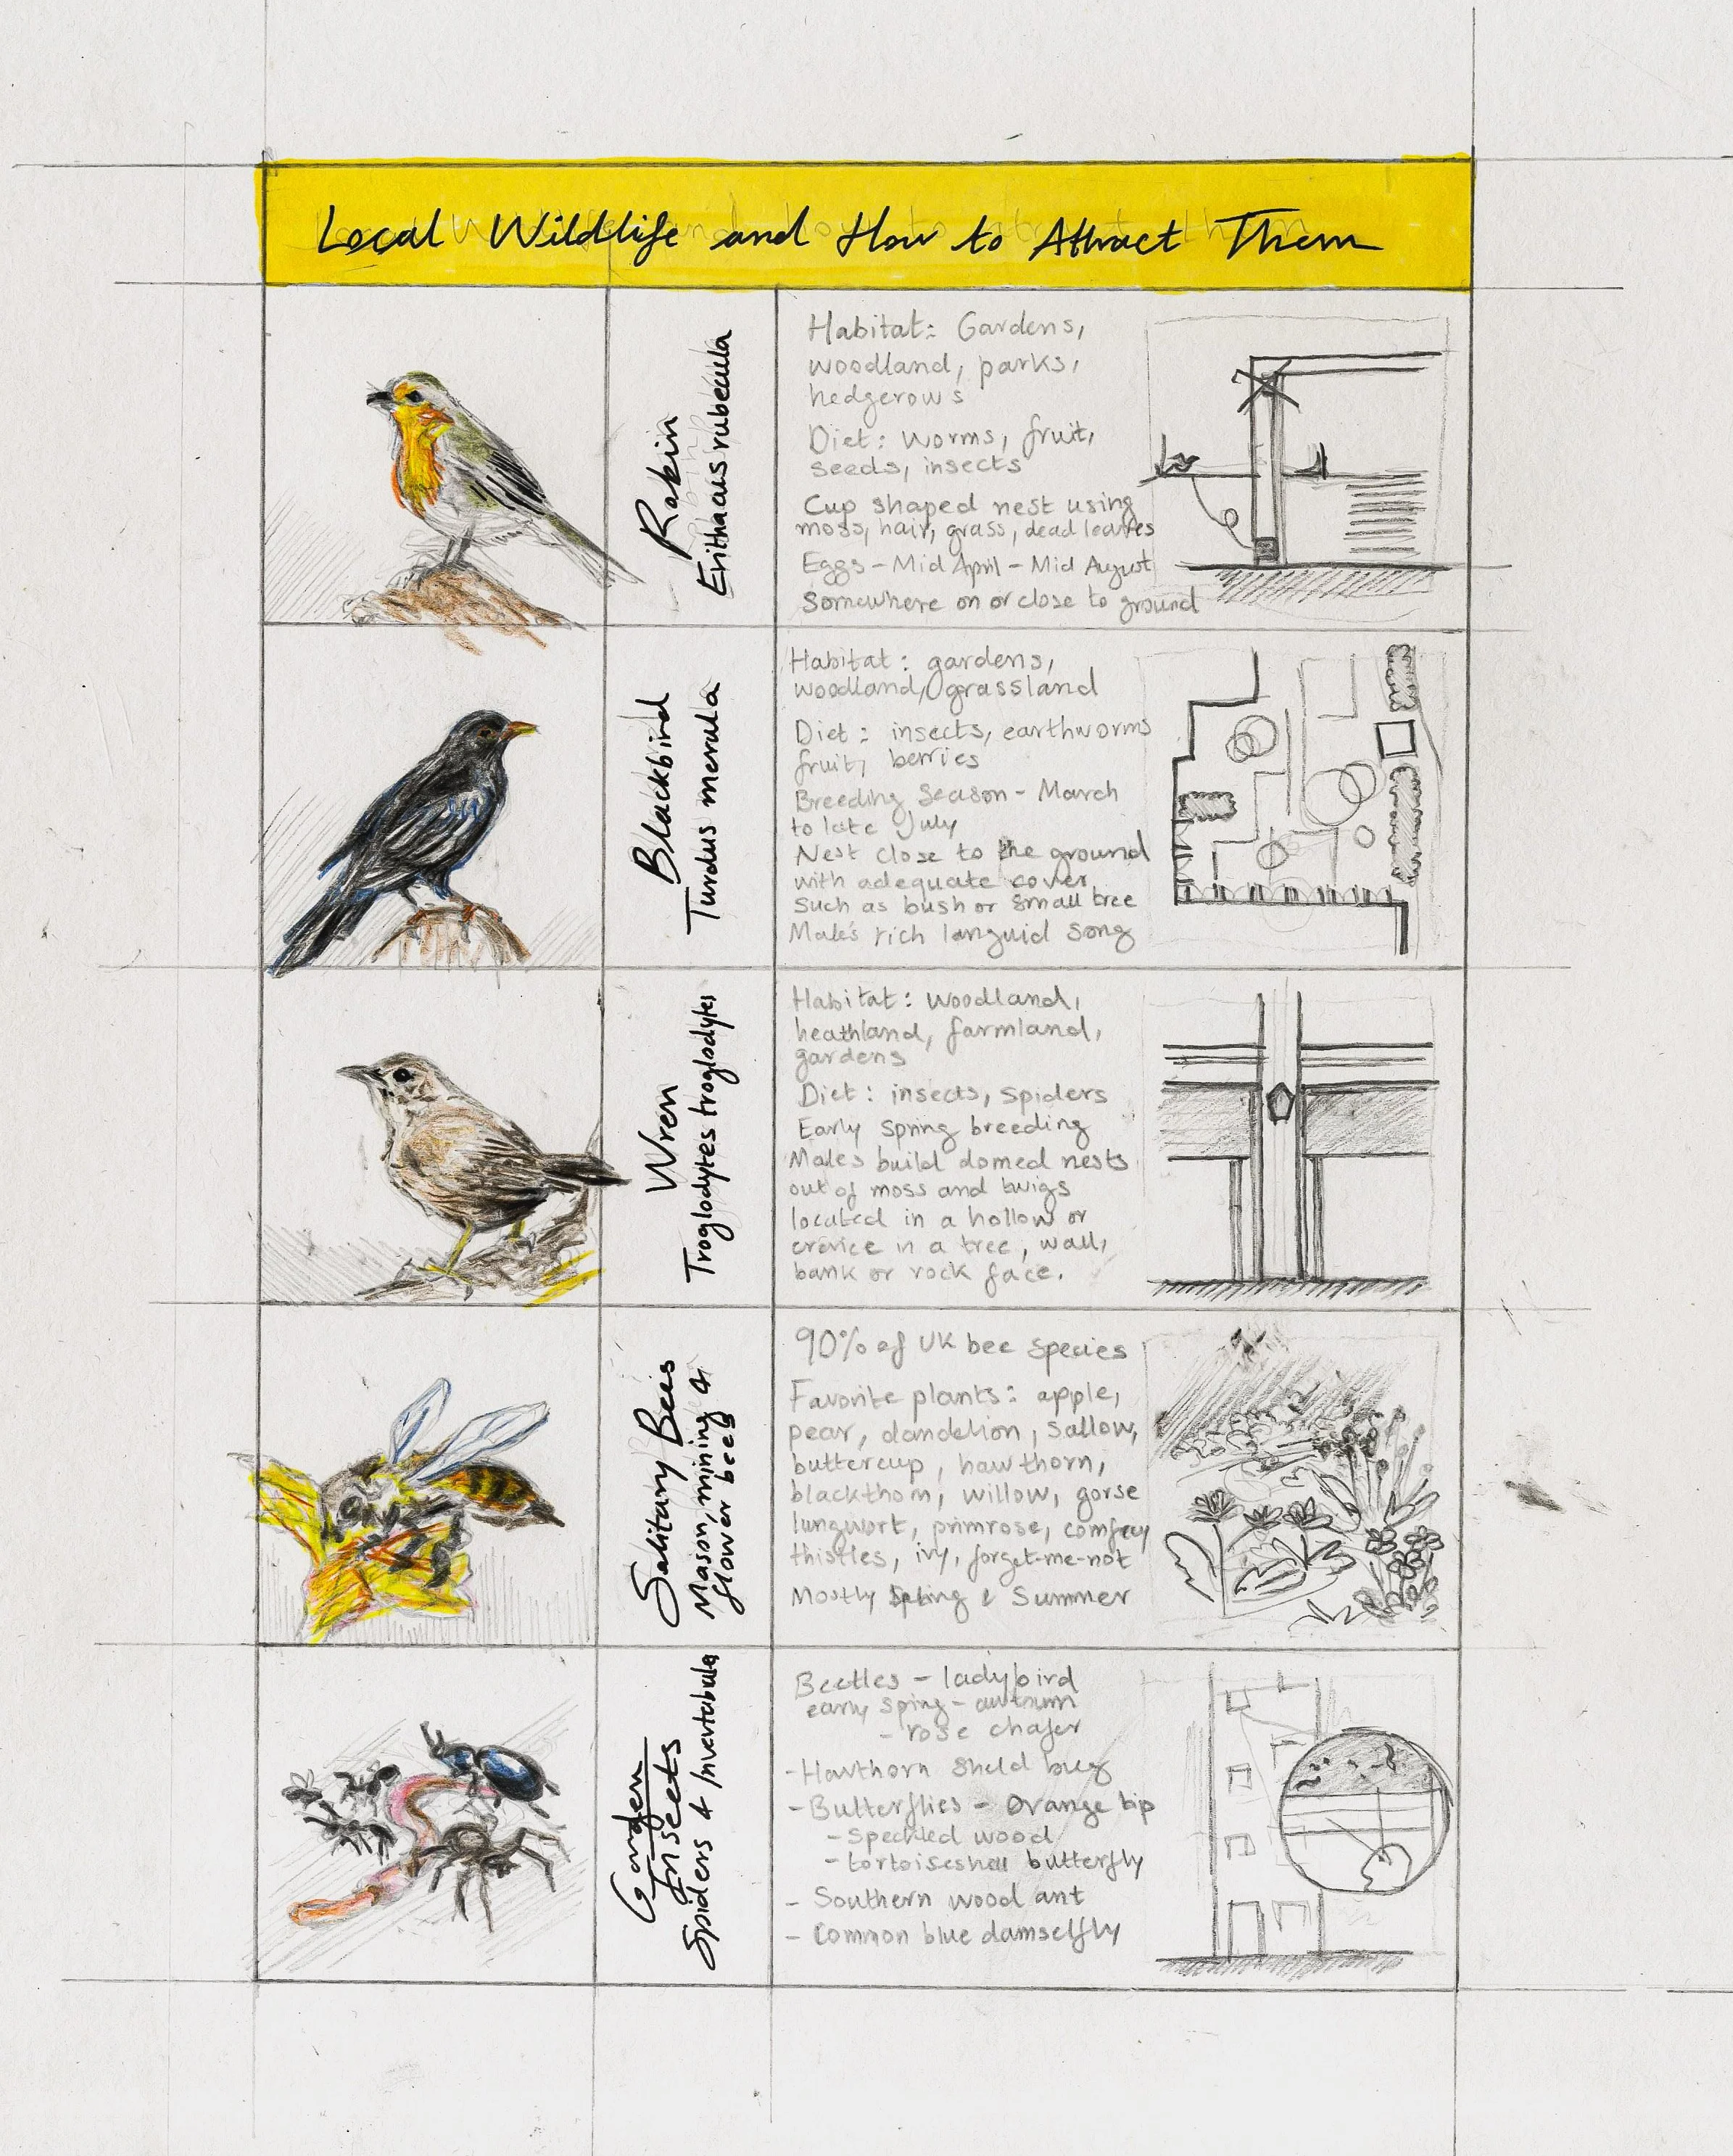 Local Wildlife and How to Attract Them
Robin
Erithacus rubecula
Habitat: Gardens,
woodland, parks,
hedgerows
Diet: worms, fruit,
seeds, insects
Cup shaped nest using
moss, hair, grass, dead leaves
Eggs - Mid April - Mid August
Somewhere on or close to ground
Blackbird
Turdus merula
Habitat: gardens,
woodland, grassland
Diet: insects, earthworms
fruit, berries
Breeding Season - March
to late July
Nest close to the ground
with adequate cover
such as bush or small tree
Male's rich languid song
Wren
Troglodytes troglodytes
Habitat: woodland,
heathland, farmland,
gardens
Diet: insects, spiders
Early spring breeding
Males build domed nests
out of moss and twigs
located in a hollow or
crevice in a tree, wall,
bank or rock face.
Solitary Bees
Mason, mining &
flower bees
90% of UK bee species
Favorite plants: apple,
pear, dandelion, sallow,
buttercup, hawthorn,
blackthorn, willow, gorse
lungwort, primrose, comfrey
thistles, ivy, forget-me-not
Mostly Spring & Summer
Garden
Insects
Spiders &
Beetles - ladybird
early sping - autumn
- rose chafer
- Hawthorn Sheld bug
- Butterflies - Orange tip
- Speckled wood
- tortoiseshell butterfly
- Southern wood ant
- Common blue damselfly